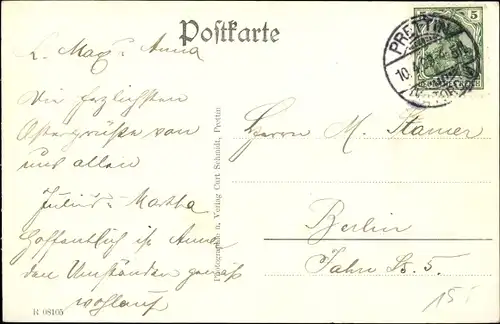 Postkarte
5 5
PRETTIN
10.4.
L. Max u. Anna
Die herzlichsten
Ostergrüße von
uns allen
Julius u. Martha
Hoffentlich ist Anna
den Umständen gemäß
wohlauf
Photographie u. Verlag Curt Schmidt, Prettin
Herrn M. Stamer
Berlin
Jahn Str. 5.
R 08105
15